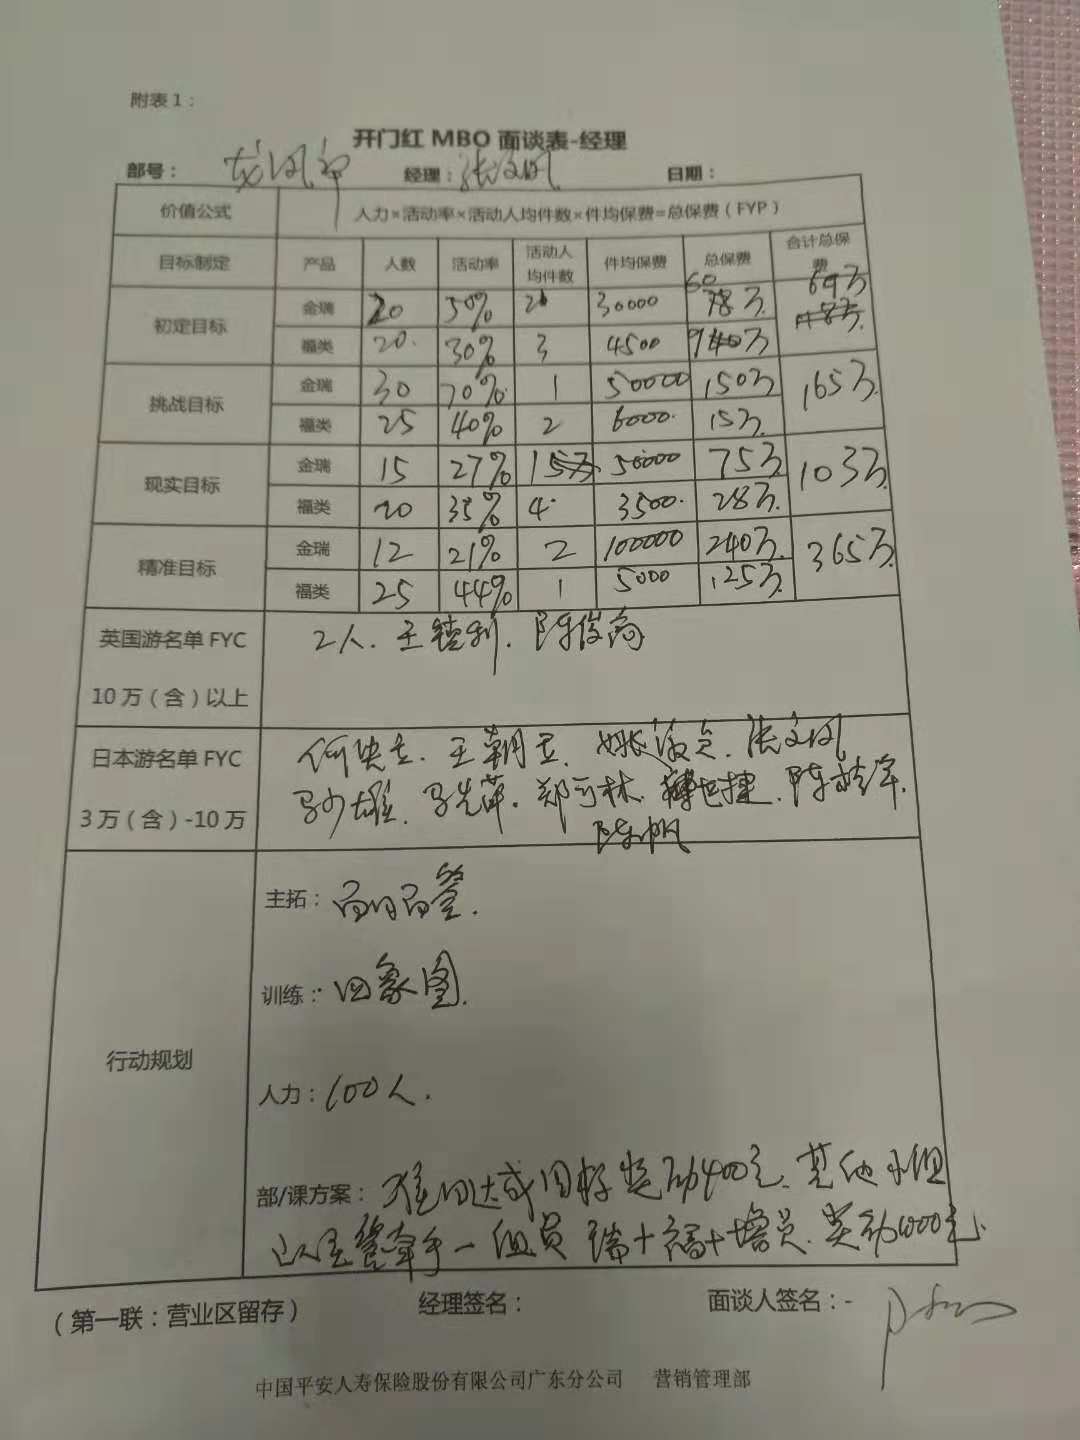 附表1：
开门红 MBO 面谈表-经理
部号： 龙凤部 经理： 张文凤 日期：
价值公式 人力×活动率×活动人均件数×件均保费=总保费（FYP）
目标制定 产品 人数 活动率 活动人均件数 件均保费 总保费 合计总保费
初定目标 金瑞 20 50% 2 30000 60 万 69万
福类 20. 30% 3 4500 9 万
挑战目标 金瑞 30 70% 1 50000 150万 165万
福类 25 40% 2 6000. 15万.
现实目标 金瑞 15 27% 1 50000 75万 103万
福类 20 35% 4 3500. 28万.
精准目标 金瑞 12 21% 2 100000 240万. 365万
福类 25 44% 1 5000 125万.
英国游名单 FYC 2人.
10 万（含）以上
日本游名单 FYC 张文凤
3 万（含）-10 万 陈帆
行动规划
主拓：
训练： 四象图.
人力： 100人.
部/课方案： 达成目标奖励400元. 其他小组
牵手一组员 瑞+福+增员. 奖励1000元
（第一联：营业区留存） 经理签名： 面谈人签名：-
中国平安人寿保险股份有限公司广东分公司 营销管理部